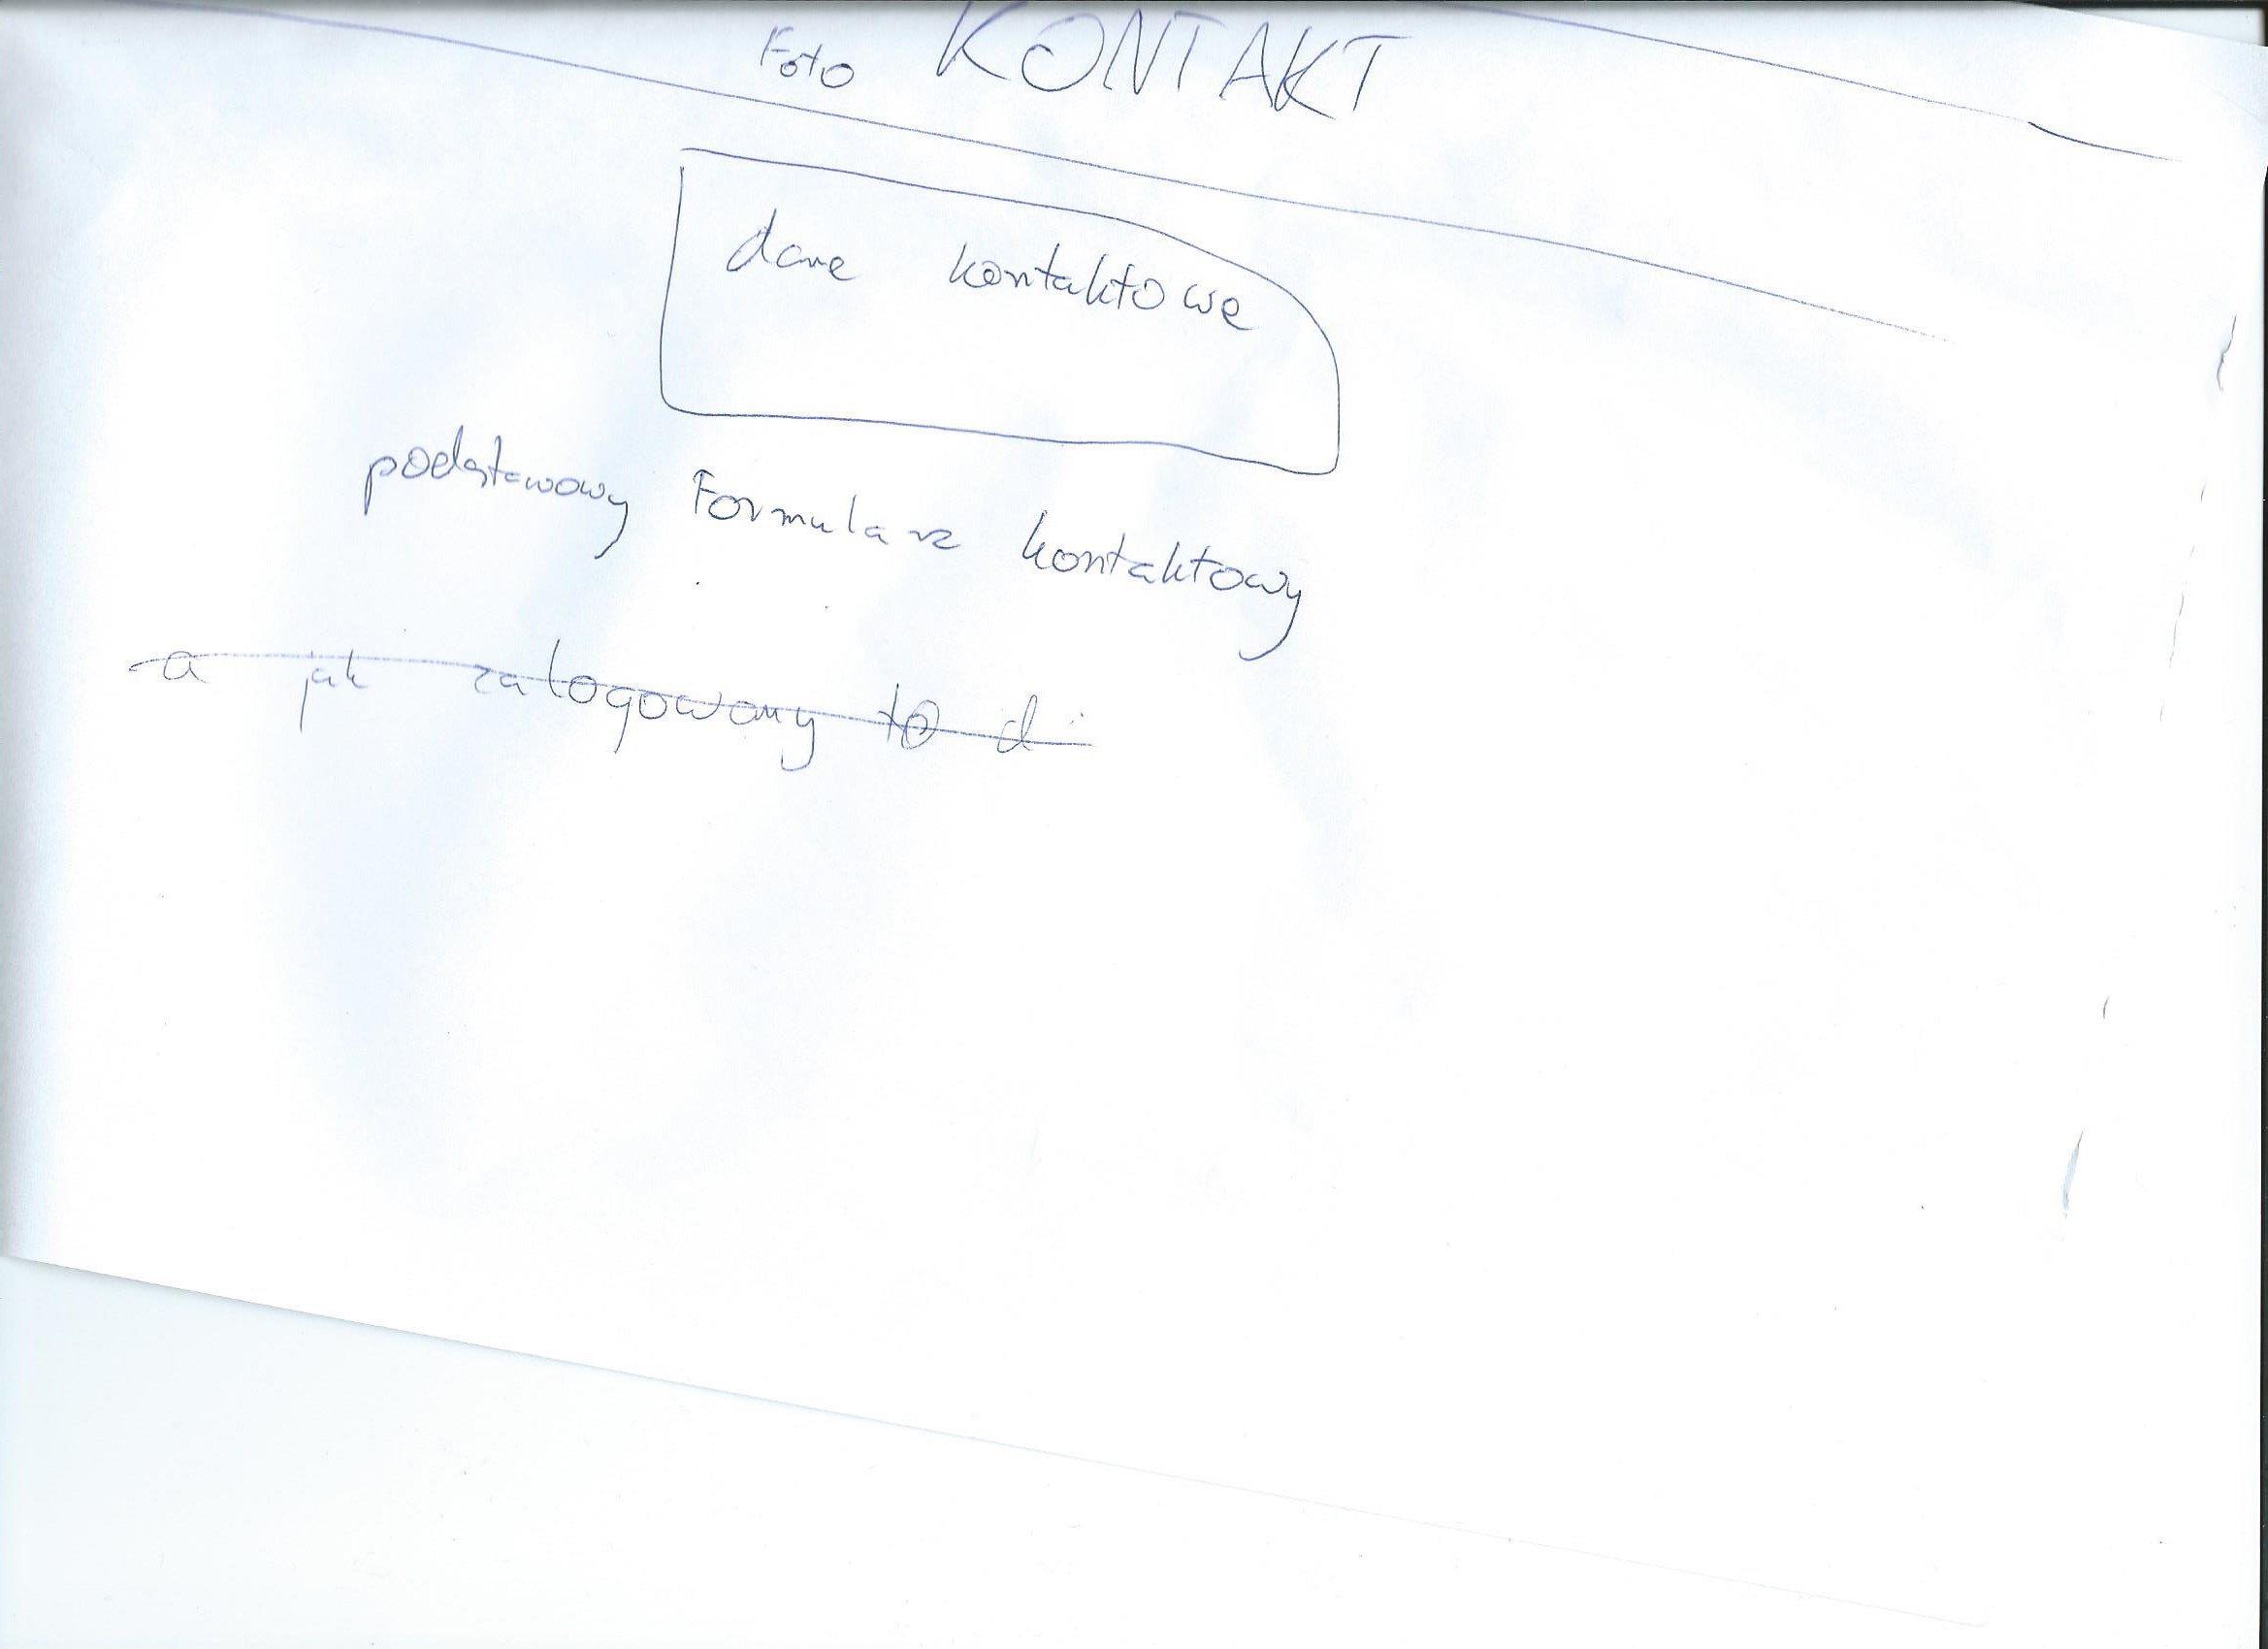 Foto KONTAKT
dane kontaktowe
podstawowy Formularz kontaktowy
a jak zalogowany to d